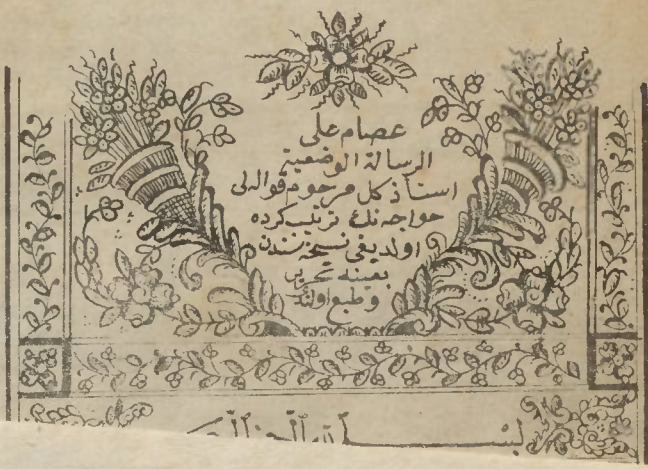 عصام على
الرسالة الوضعية
استاذ كل مرحوم قواله لى
خواجه نك ترتيب كرده
اولديغى نسخه سندن
بعينه تحرير
و طبع اولندى
بســـم الله الرحمن الرحيم